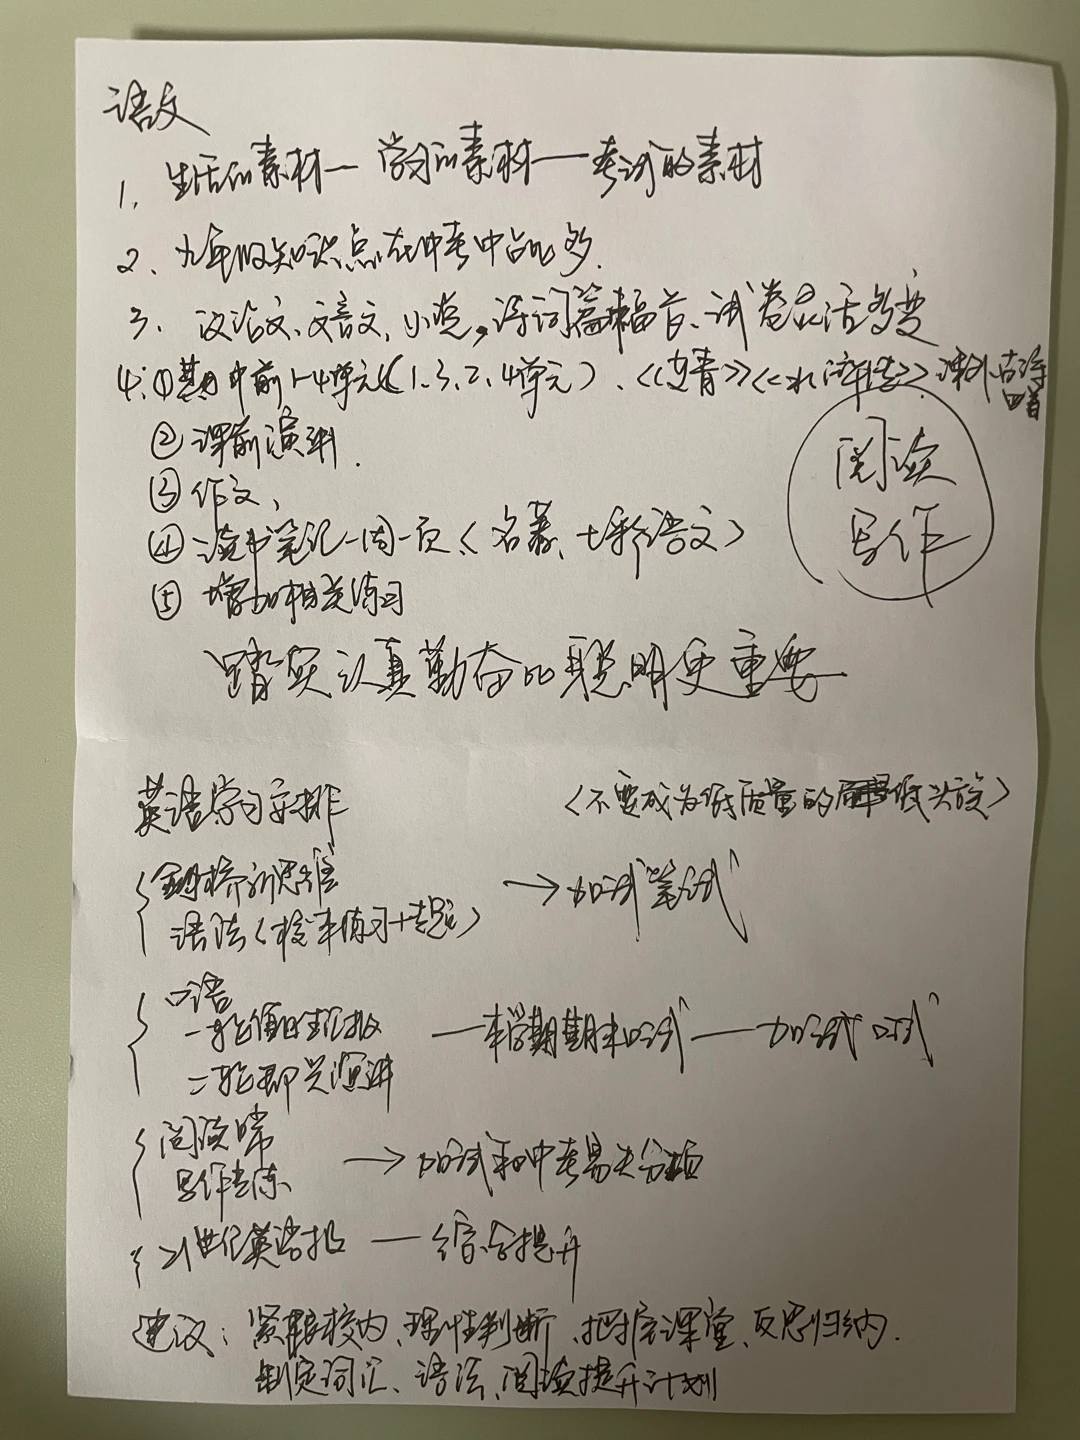 语文
1、生活的素材—学习的素材——考试的素材
2、九年级知识点在中考中占比多.
3、议论文、文言文、小说,诗词篇幅首、试卷灵活多变
4:①期中前1-4单元(1、3、2、4单元)、《艾青》《水浒传》课外古诗四首
②课前演讲.
③作文、
④读书笔记一周一页、(名著、七彩语文)
⑤增加相关练习
阅读
写作
踏实认真勤奋比聪明更重要
英语学习安排 (不要成为低质量的低头族)
剑桥新思维
语法(校本练习+专题) →加试笔试
口语
一轮值日生汇报 —本学期期末口试——加试口试
二轮即兴演讲
阅读
写作专练 →加试和中考易失分项
21世纪英语报 —综合提升
建议:紧跟校内、理性判断、把握课堂、反思归纳.
制定词汇、语法、阅读提升计划